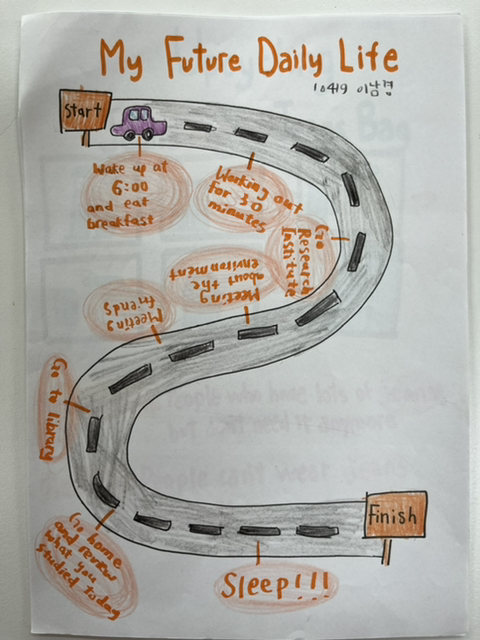 My Future Daily Life
10419 이남경
Start
Wake up at
6:00
and eat
breakfast
Working out
for 30
minutes
Go
Research
Institute
Meeting
about the
environment
Meeting
friends
Go to library
Go home
and review
what you
studied today
Sleep!!!
Finish